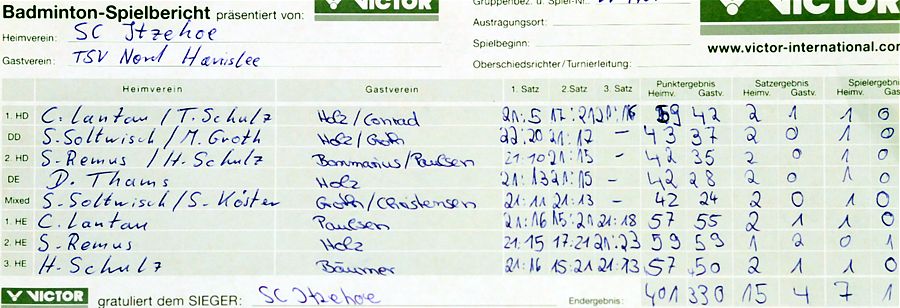 VICTOR
Badminton-Spielbericht präsentiert von:
Heimverein: SC Itzehoe
Gastverein: TSV Nord Harrislee
Gruppenbez. u. Spiel-Nr.:
Austragungsort:
Spielbeginn:
Oberschiedsrichter/Turnierleitung:
VICTOR
www.victor-international.com
Heimverein Gastverein 1. Satz 2. Satz 3. Satz Punktergebnis Heimv. Gastv. Satzergebnis Heimv. Gastv. Spielergebnis Heimv. Gas
1. HD C. Lantau / T. Schulz Holz/Conrad 21:5 17:21 21:16 59 42 2 1 1 0
DD S. Soltwisch / M. Groth Holz/Groth 22:20 21:17 - 43 37 2 0 1 0
2. HD S. Remus / H. Schulz Bammarius/Paulsen 21:10 21:15 - 42 35 2 0 1 0
DE D. Thams Holz 21:13 21:15 - 42 28 2 0 1 0
Mixed S. Soltwisch / S. Köster Groth/Christensen 21:11 21:13 - 42 24 2 0 1 0
1. HE C. Lantau Paulsen 21:16 15:21 21:18 57 55 2 1 1 0
2. HE S. Remus Holz 21:15 17:21 21:23 59 59 1 2 0 1
3. HE H. Schulz Bäumer 21:16 15:21 21:13 57 50 2 1 1 0
VICTOR gratuliert dem SIEGER: SC Itzehoe Endergebnis: 401 330 15 4 7 1